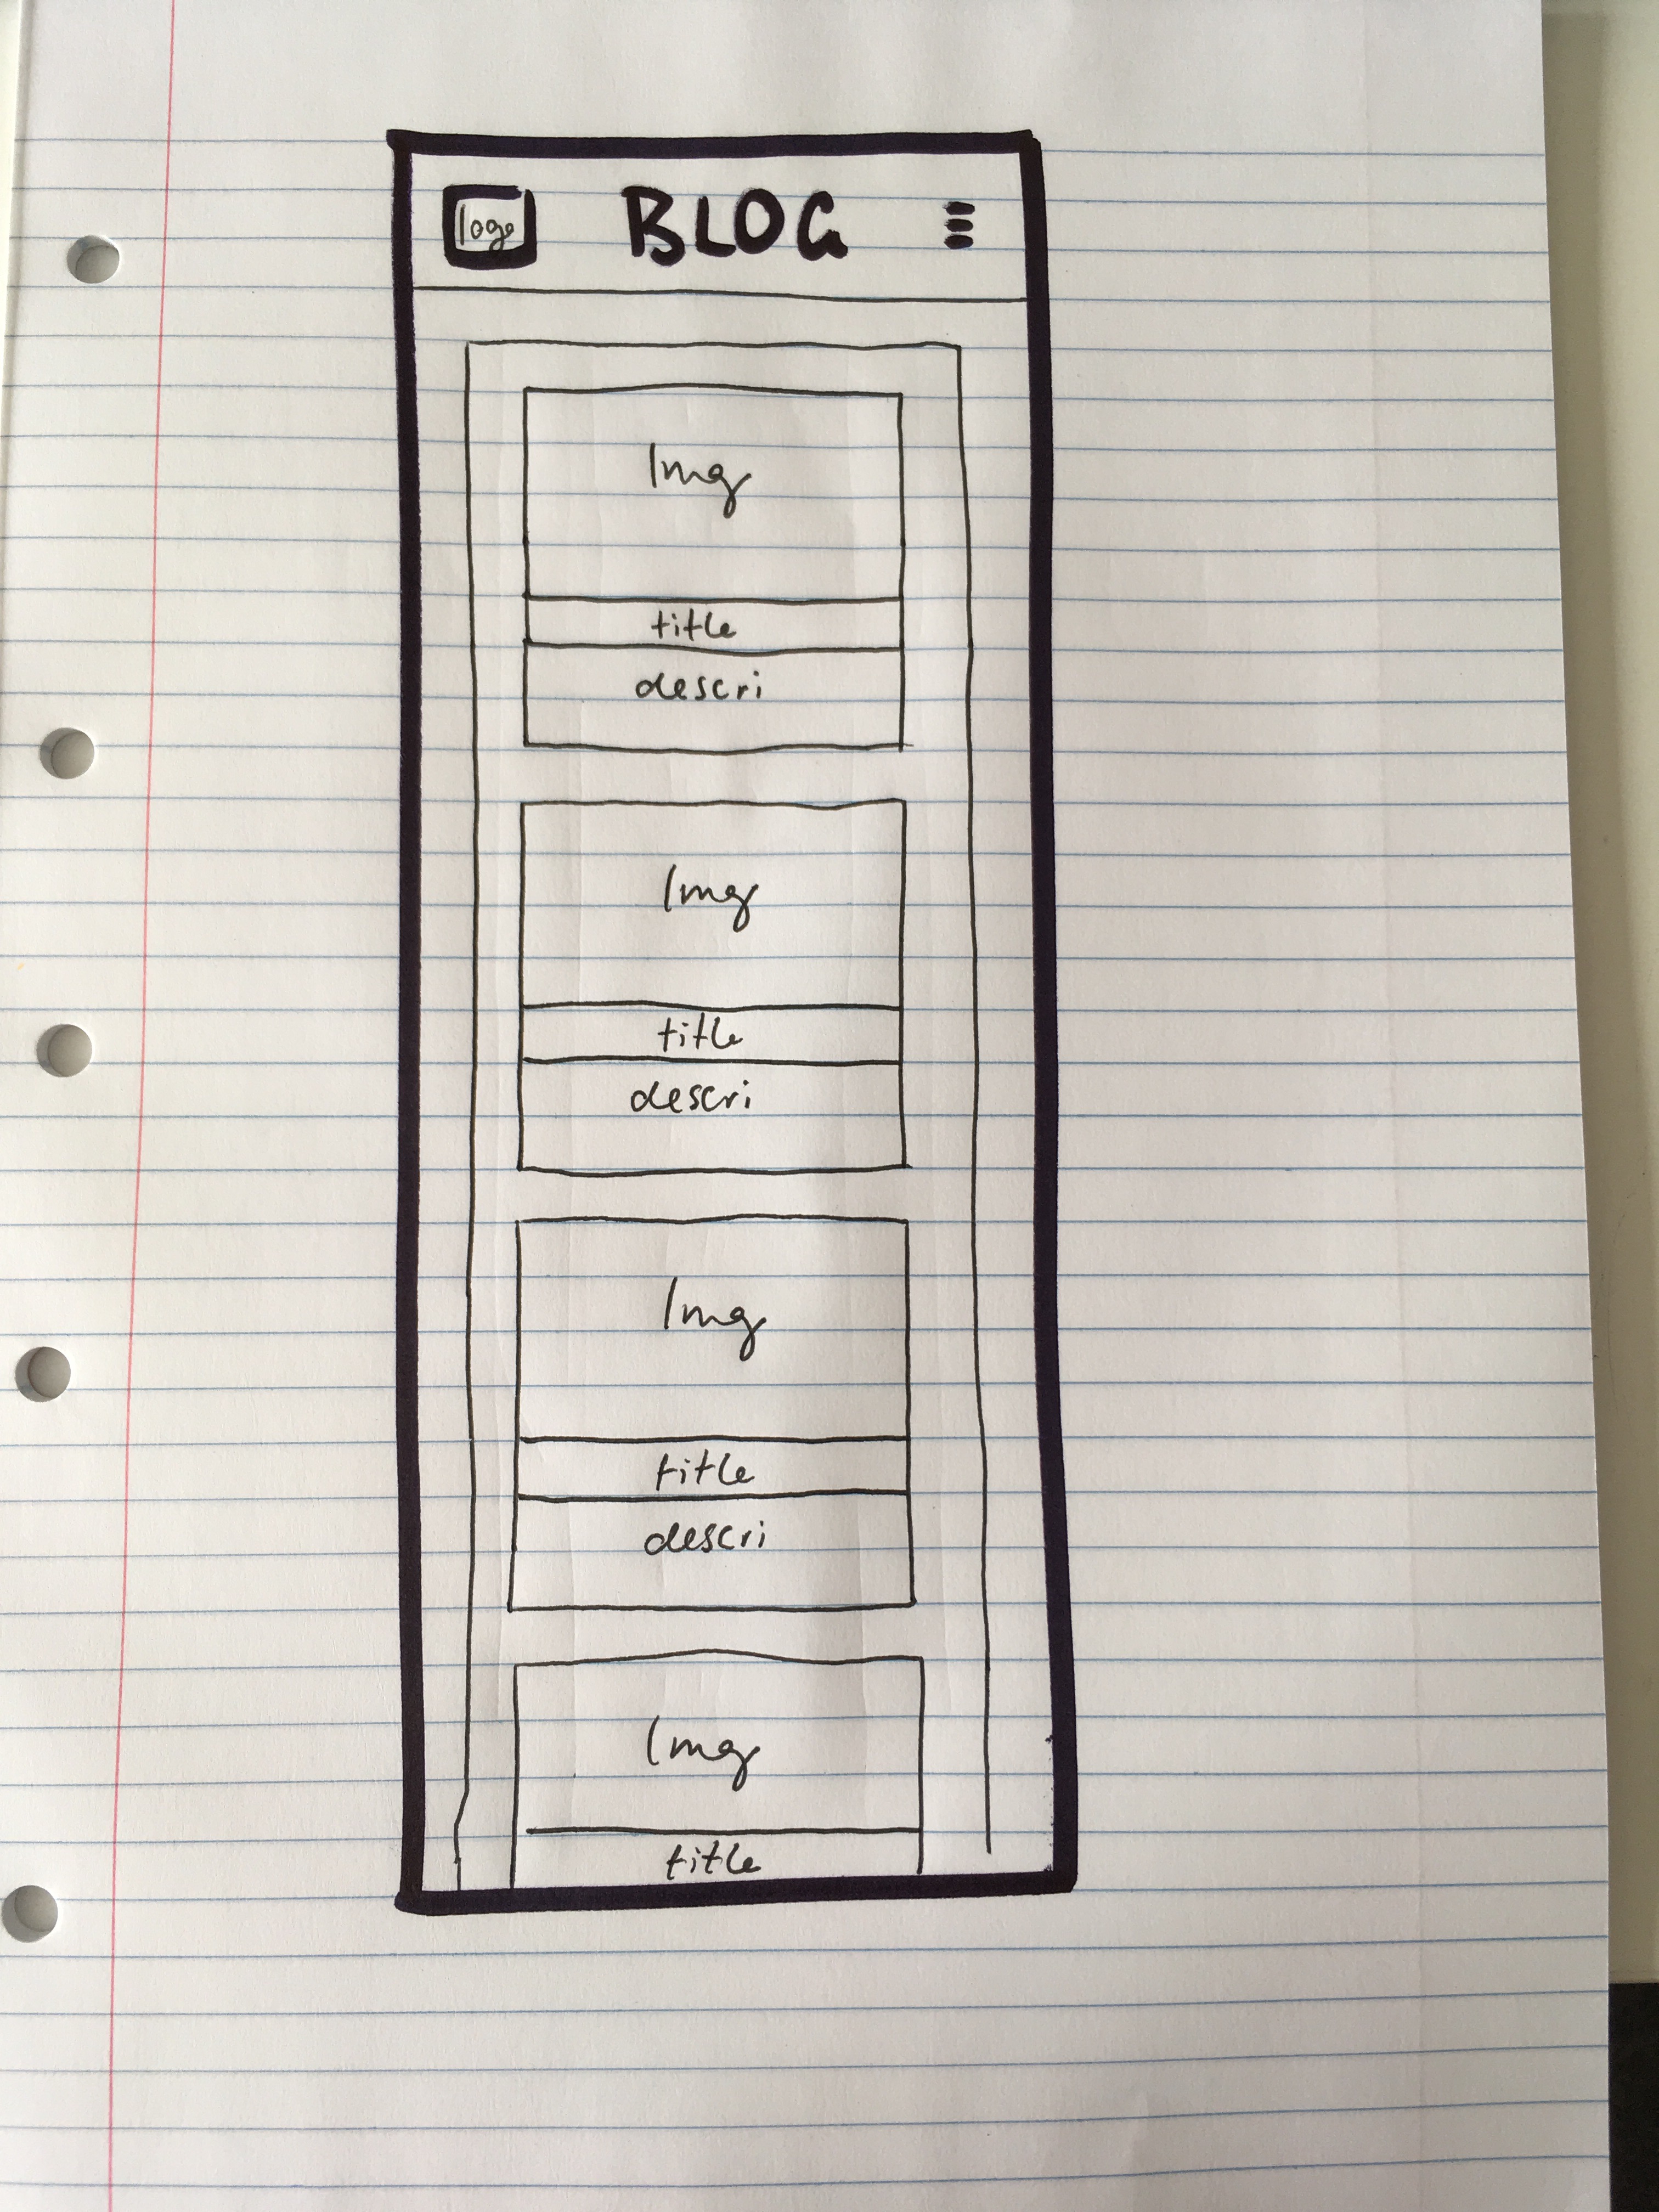 logo BLOG
Img
title
descri
Img
title
descri
Img
title
descri
Img
title